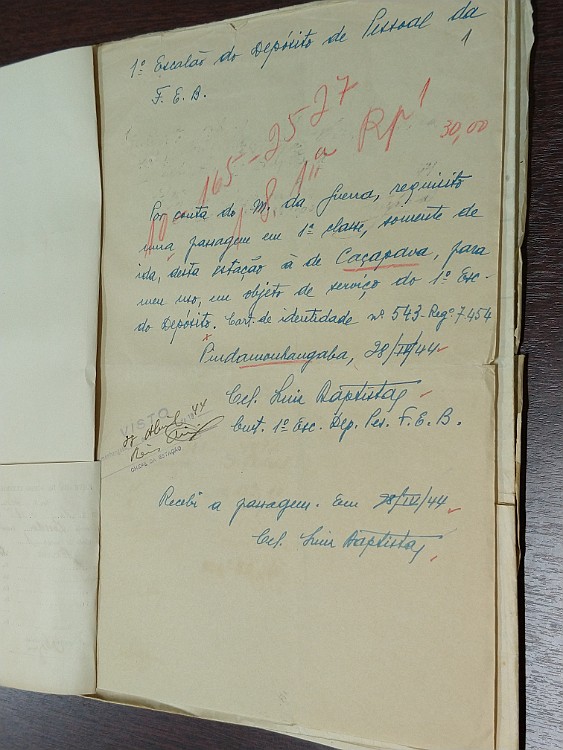 1º Escalão do Depósito de Pessoal da
1
F. E. B.
165-25 27
1ª Rp 1
30,00
Por conta do M. da Guerra, requisito
uma passagem em 1ª classe, somente de
ida, desta estação à de Caçapava, para
meu uso, em objeto de serviço do 1º Esc.
do Depósito. Cart. de identidade nº 543-Regº 7454
Pindamonhangaba, 28/IV/44
Cel. Luiz Baptista
Cmt. 1º Esc. Dep. Pes. F. E. B.
VISTO
28 Abril 44
CHEFE DA ESTAÇÃO
Recebi a passagem. Em 28/IV/44
Cel. Luiz Baptista